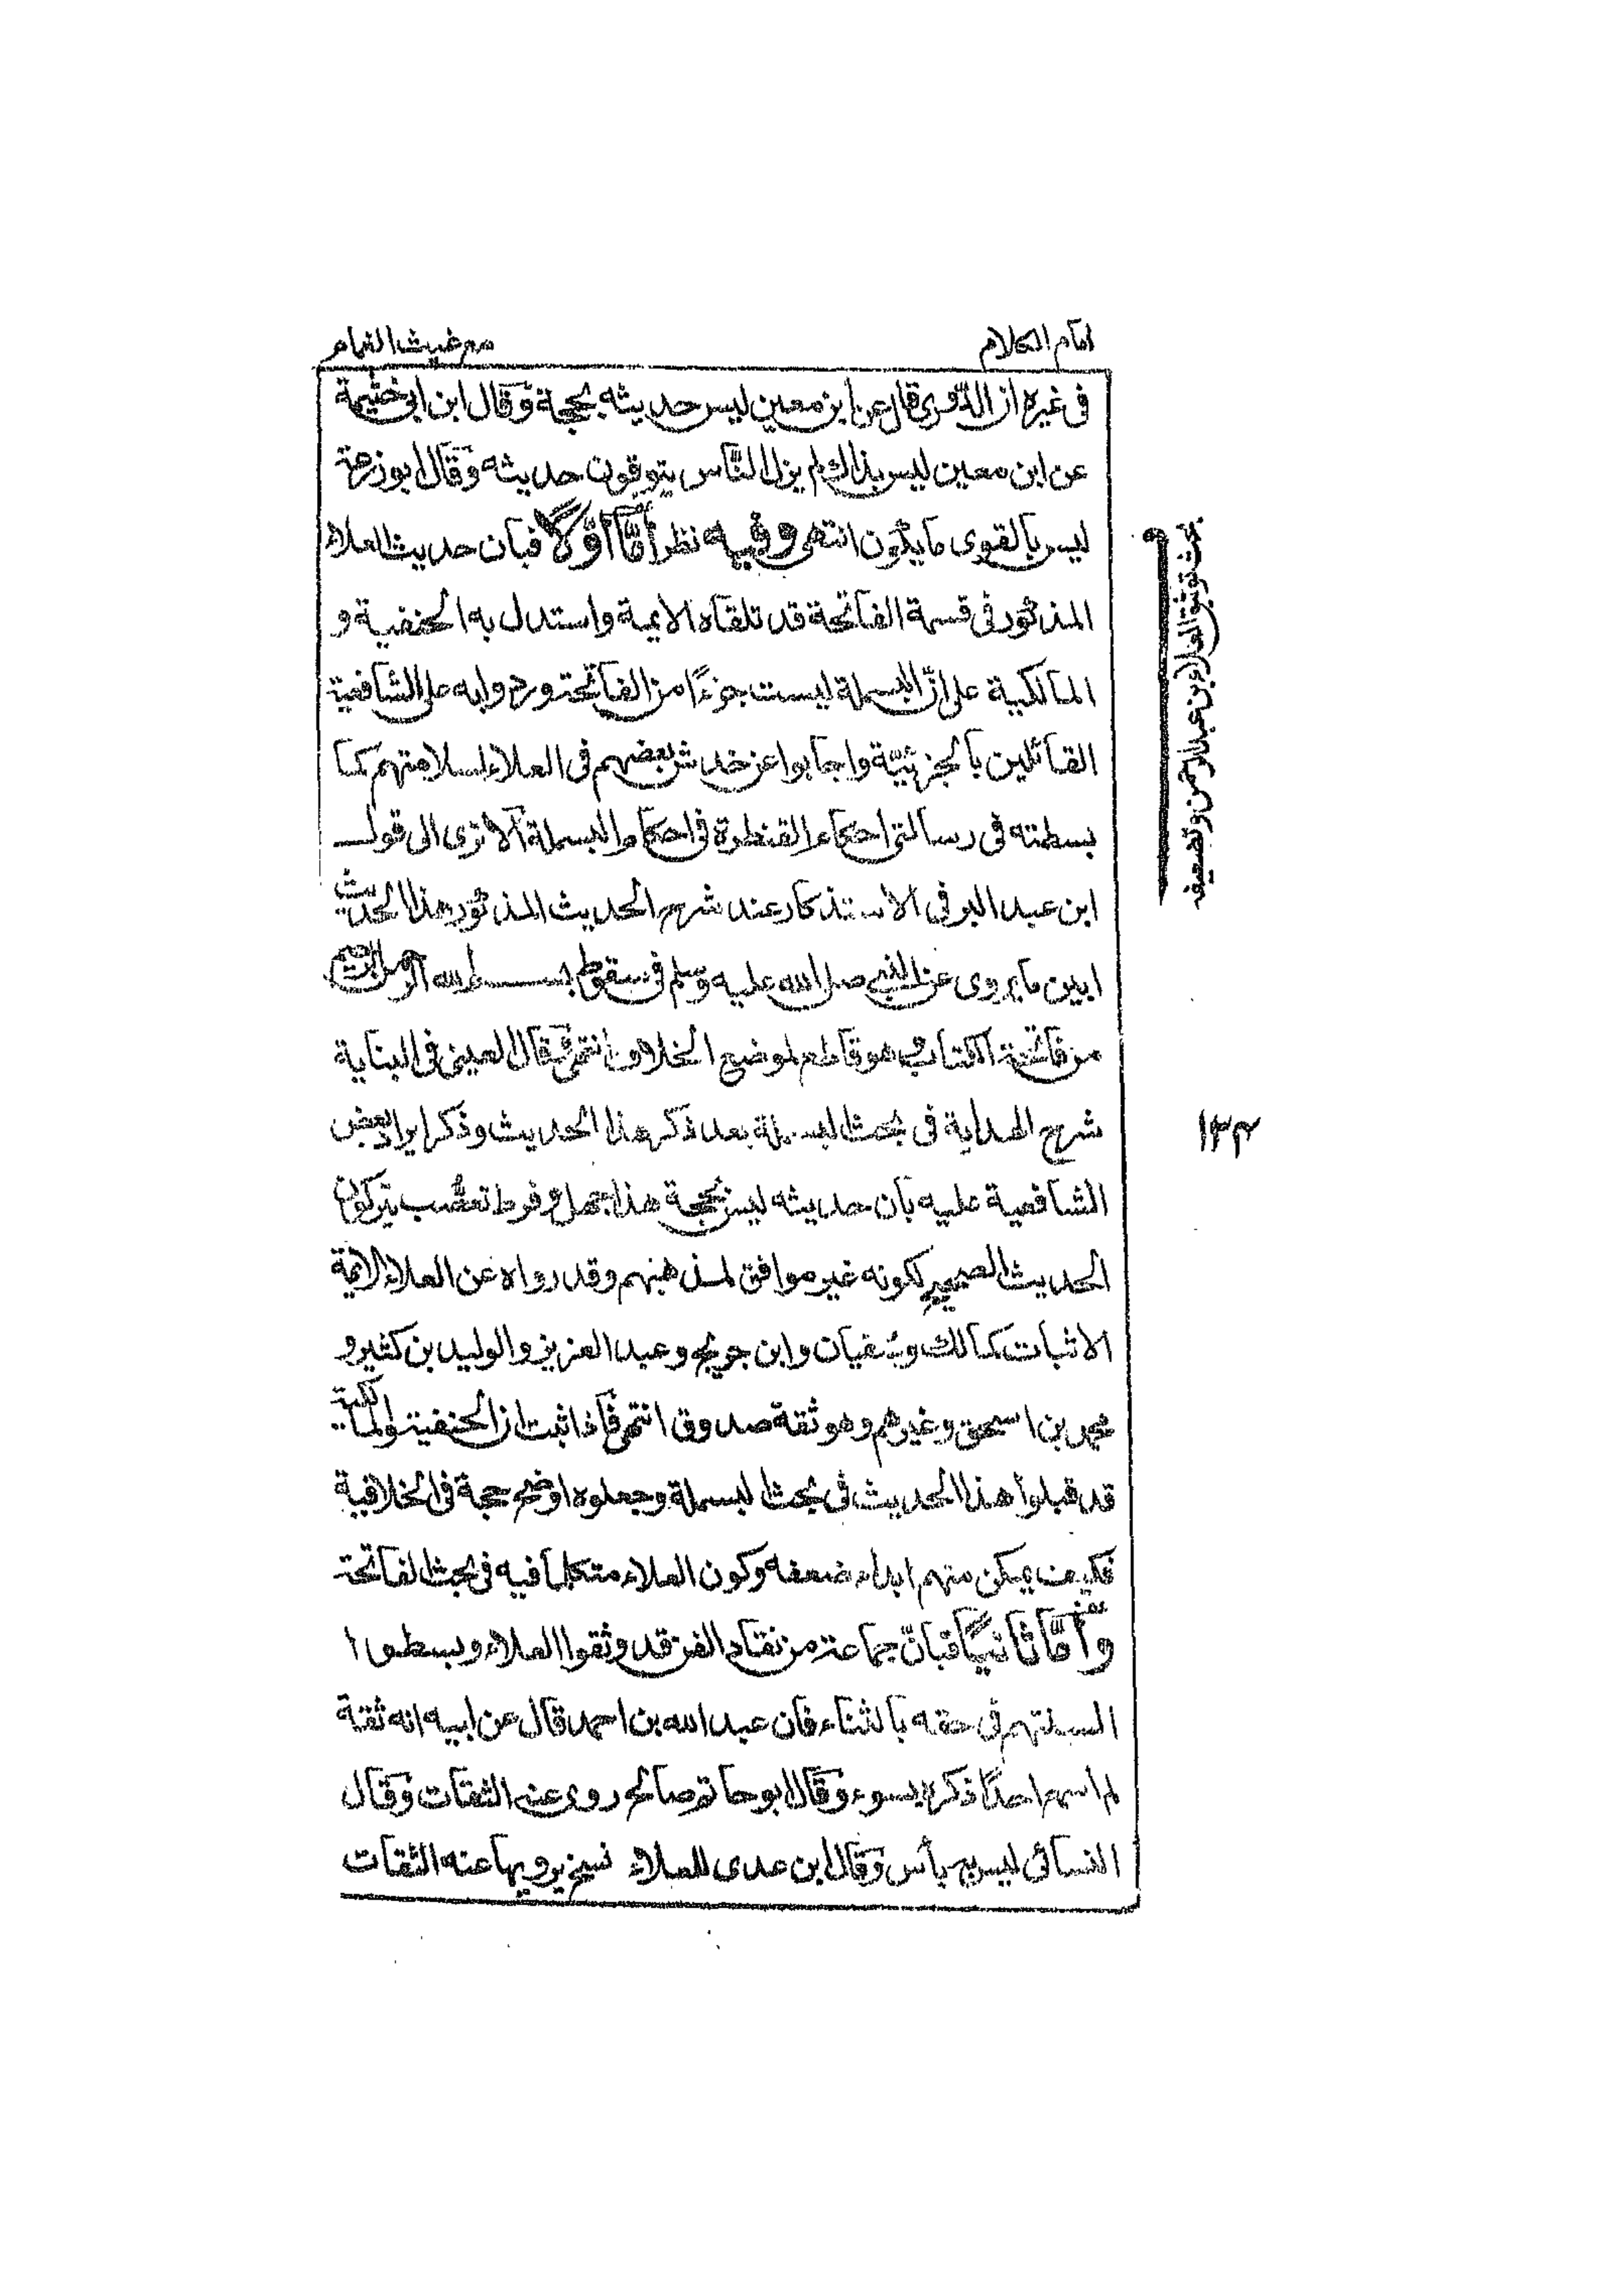 امام الكلام
مع غيث الغمام
فى غيره ان الدورى قال عن ابن معين ليس حديثه بحجة وقال ابن ابى خيثمة
عن ابن معين ليس بذاك لم يزل الناس يتوقون حديثه وقال ابو زرعة
ليس بالقوى ما يكون انتهى وفيه نظر أمّا أوّلاً فبان حديث العلاء
المذكور فى قسمة الفاتحة قد تلقاه الايمة واستدل به الحنفية و
المالكية على انّ البسملة ليست جزءًا من الفاتحة وردوا به على الشافعية
القائلين بالجزئيّة واجابوا عن خدش بعضهم فى العلاء كما
بسطته فى رسالتى احكام القنطرة فى احكام البسملة ألا ترى الى قول
ابن عبد البر فى الاستذكار عند شرح الحديث المذكور هذا الحديث
ابين ما يروى عن النبى صلى الله عليه وسلم فى سقوط بسم الله الرحمن الرحيم
من فاتحة الكتاب وهو قاطع لموضع الخلاف انتهى وقال العينى فى البناية
شرح الهداية فى بحث البسملة بعد ذكر هذا الحديث وذكر ايراد بعض
الشافعية عليه بان حديثه ليس بحجة هذا جهل وفرط تعصّب يتركون
الحديث الصحيح لكونه غير موافق لمذهبهم وقد رواه عن العلاء الائمة
الاثبات كمالك وسفيان وابن جريج وعبد العزيز والوليد بن كثير و
محمد بن اسحق وغيرهم وهو ثقة صدوق انتهى فاذا ثبت ان الحنفية والمالكية
قد قبلوا هذا الحديث فى بحث البسملة وجعلوه اوضح حجة فى الخلافية
فكيف يمكن منهم ابداء ضعفه وكون العلاء متكلما فيه فى بحث الفاتحة
وأمّا ثانيًا فبانّ جماعة من نقاد الفن قد وثقوا العلاء وبسطوا
السنتهم فى حقه بالثناء فان عبد الله بن احمد قال عن ابيه انه ثقة
لم اسمع احدًا ذكره بسوء وقال ابو حاتم صالح روى عنه الثقات وقال
النسائى ليس به بأس وقال ابن عدى للعلاء نسخ يرويها عنه الثقات
بحث توثيق العلاء بن عبد الرحمن وتضعيفه
١٣٤